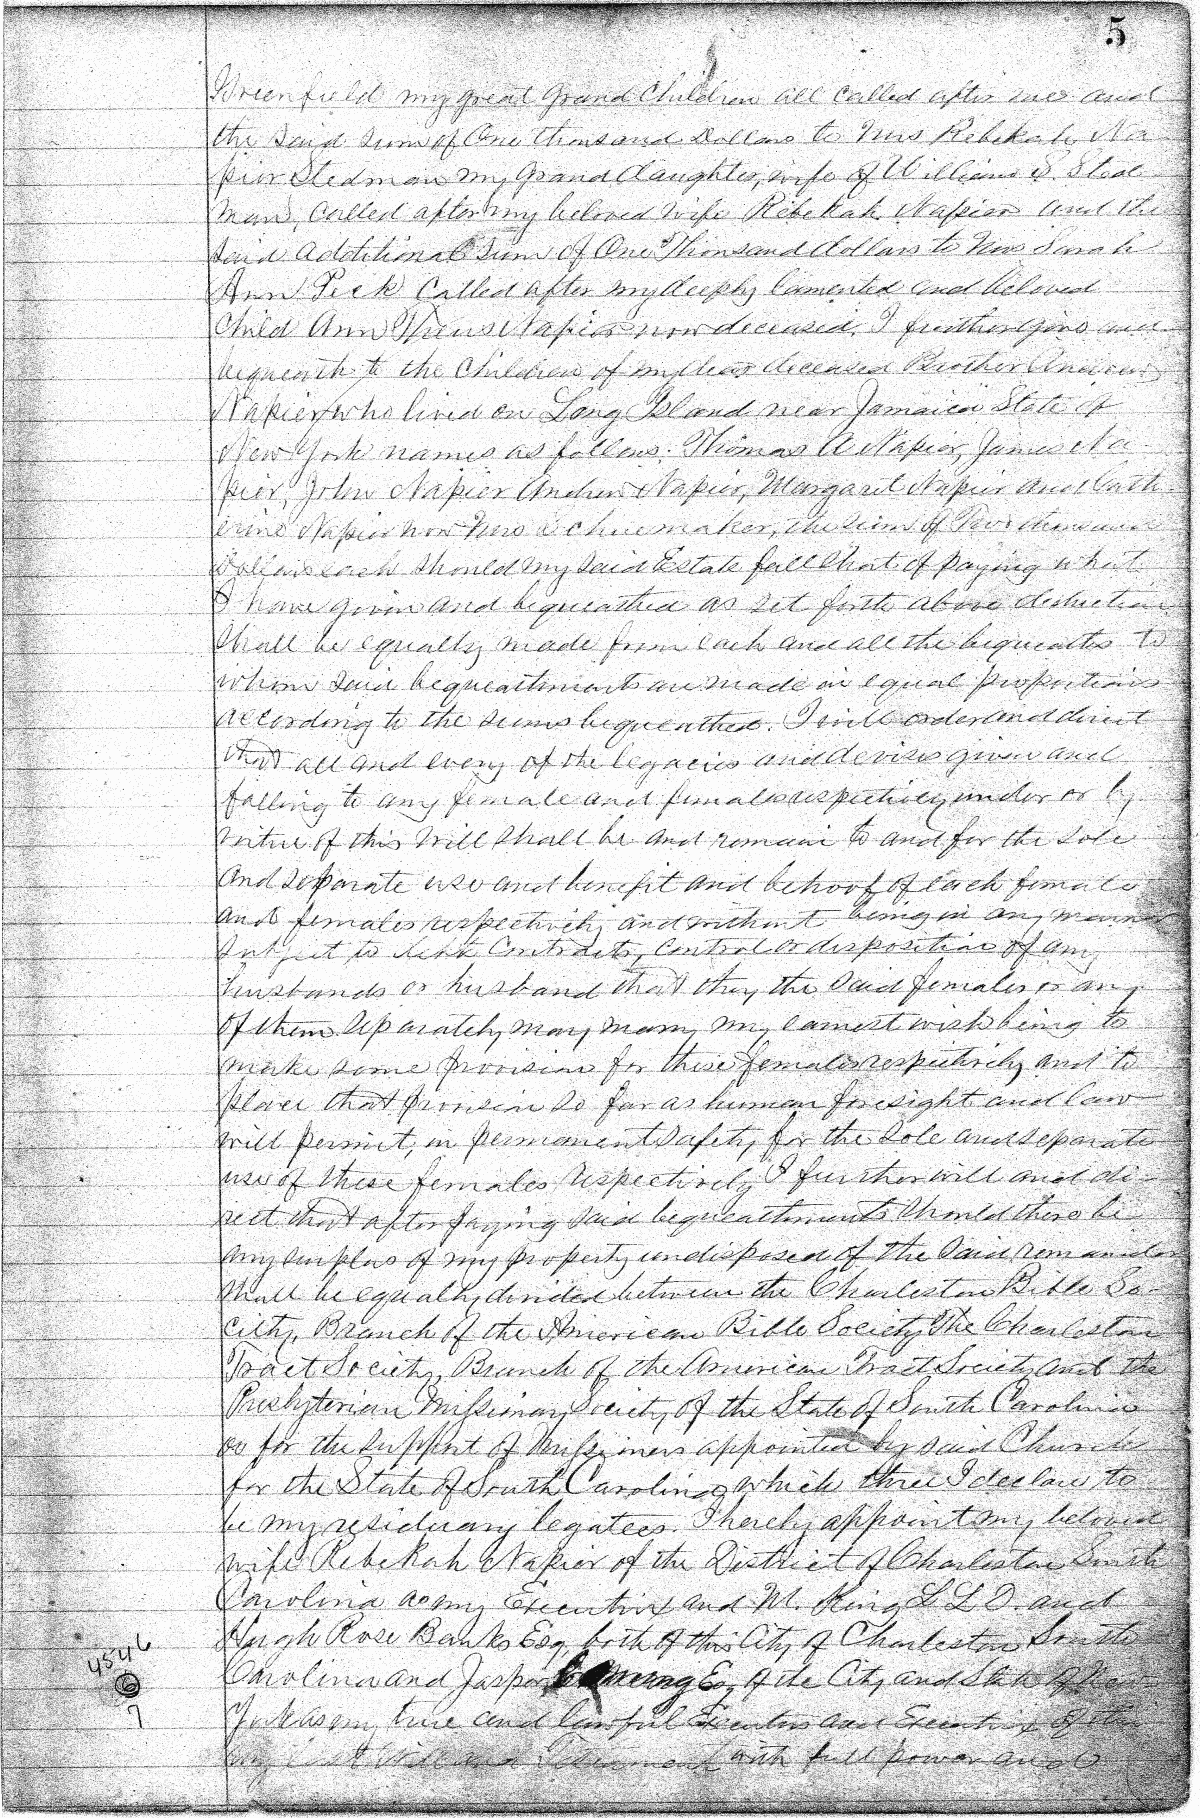 5
Greenfield my great Grand Children all called after me and
the said sum of One thousand Dollars to Mrs Rebekah Na
pier Stedman my Grand daughter, wife of William S. Sted
man, called after my beloved wife Rebekah Napier and the
said additional sum of One Thousand dollars to Mrs Sarah
Ann Peck called after my deeply lamented and beloved
Child Ann Napier now deceased. I further give and
bequeath to the children of my dear deceased Brother Andrew
Napier who lived on Long Island near Jamaica State of
New York names as follows. Thomas A Napier, James Na
pier, John Napier Andrew Napier, Margaret Napier and Cath
erine Napier now Mrs the sum of Two thousand
Dollars each should my said Estate fall short of paying what
I have given and bequeathed as set forth above deduction
shall be equally made from each and all the bequeaths to
whom said bequeathments are made in equal proportions
according to the sums bequeathed. I will order and direct
that all and every of the legacies and devises given and
falling to any female and females respectively under or by
virtue of this Will shall be and remain to and for the sole
and separate use and benefit and behoof of each female
and females respectively and without being in any manner
subject to debts contracts, control or disposition of any
husbands or husband that they the said females or any
of them separately may marry my earnest wish being to
make some provision for these females respectively and to
place that provision so far as human foresight and law
will permit, in permanent safety for the sole and separate
use of these females respectively I further will and di-
rect that after paying said bequeathments should there be
any surplus of my property undisposed of the said remainder
shall be equally divided between the Charleston Bible So-
ciety, Branch of the American Bible Society The Charleston
Tract Society, Branch of the American Tract Society and the
Presbyterian Missionary Society of the State of South Carolina
or for the support of Missioners appointed by said Church
for the State of South Carolina, which three I declare to
be my residuary legatees. I hereby appoint my beloved
wife Rebekah Napier of the District of Charleston South
Carolina as my Executrix and M. King L L D. and
Hugh Rose Banks Esq, both of this City of Charleston South
Carolina and Jasper Corning Esq of the City and State of New
York as my true and lawful Executors and Executrix of this
my last Will and Testament with full power and
4546
6
7